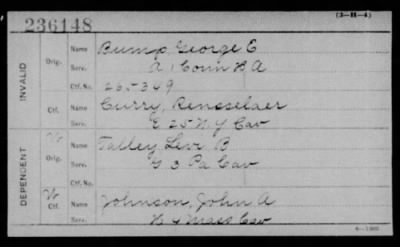 236148 (3-111-4)
INVALID
Orig. Name Bump, George E
Serv. A 1 Conn H A
Ctf. No. 265349
Ctf. Name Curry, Rensselaer
Serv. E 25 N Y Cav
DEPENDENT
W Orig. Name Talley, Levi B
Serv. G 3 Pa Cav
Ctf. No.
W Ctf. Name Johnson, John A
Serv. 4 Mass Cav